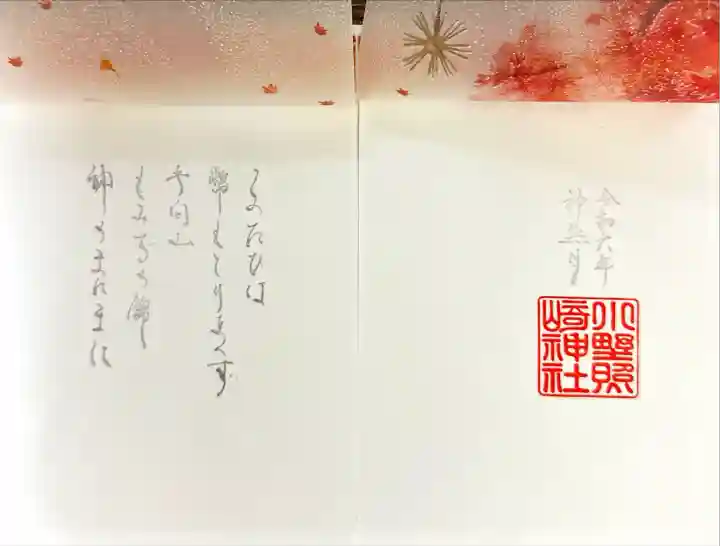 令和六年
神無月
小野照
崎神社
このたひは
幣もとりあへず
手向山
もみちの錦
神のまにまに